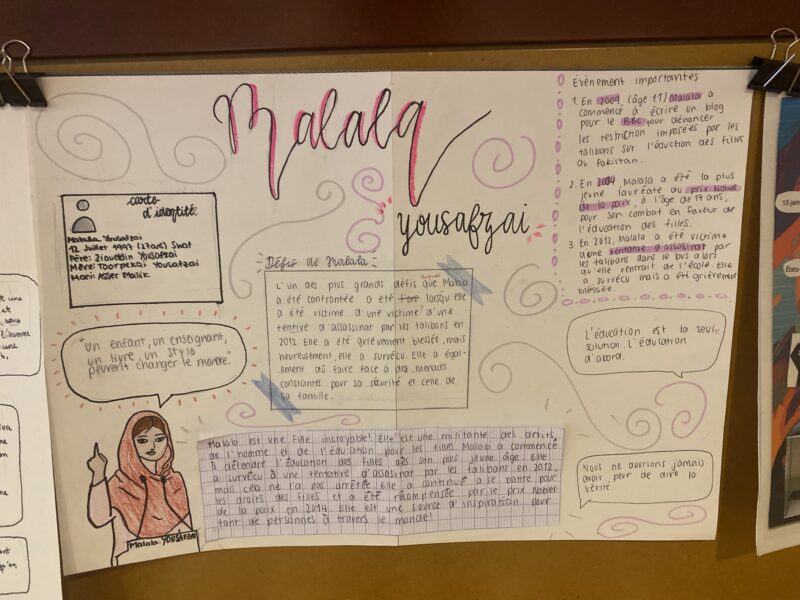 Malala
yousafzai
carte
d'identité
Malala Yousafzai
12 Juillet 1997 (27ans) Swat
Père: Ziauddin Yousafzai
Mère: Toorpekai Yousafzai
Mari: Asser Malik
"Un enfant, un enseignant,
un livre, un stylo
peuvent changer le monde."
Malala YOUSAFZAI
Défis de Malala
L'un des plus grands défis que Malala
a été confrontée a été lorsqu'elle
a été victime d'une victime d'une
tentive d'assassinat par les talibans en
2012. Elle a été grièvement blessée, mais
heureusement, elle a survécu. Elle a égal-
ement dû faire face à des menaces
constantes pour sa sécurité et celle de
sa famille.
Malala est une fille incroyable! Elle est une militante des droits
de l'homme et de l'éducation pour les filles. Malala a commencé
à défendre l'éducation des filles dès son plus jeune âge. Elle
a survécu à une tentative d'assasinat par les talibans en 2012,
mais cela ne l'a pas arrêtée. Elle a continué a se battre pour
les droits des filles et a été récompensée par le prix Nobel
de la paix en 2014. Elle est une source d'inspiration pour
tant de personnes à travers le monde!
Evènement importantes
1. En 2009 (âge 11) Malala a
commencé à écrire un blog
pour le BBC pour dénoncer
les restriction imposées par les
talibans sur l'éduction des filles
au Pakistan.
2. En 2004, Malala a été la plus
jeune lauréate au prix Nobel
de la paix, à l'âge de 17 ans,
pour son combat en faveur de
l'éducation des filles.
3. En 2012, Malala a été victime
d'une tentative d'assasinat par
les talibans dans le bus alors
qu'elle rentrait de l'école. Elle
a survécu mais a été grièvement
blessée.
L'éducation est la seule
solution. L'éducation
d'abord.
Nous ne devrions jamais
avoir peur de dire la
vérité